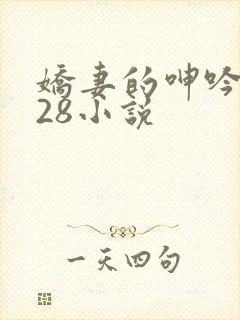 嬌妻的呻吟
28小說
一天四句